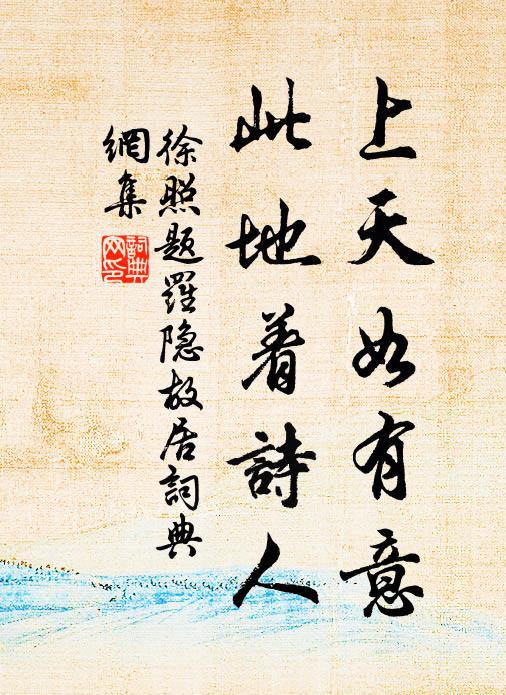 上天如有意
此地着詩人
徐照题羅隐故居詞典
網集
詞典
网印